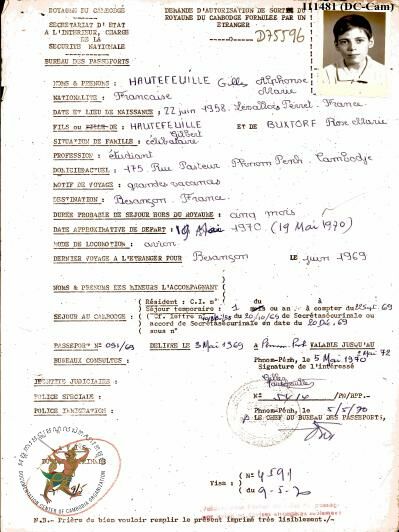 ROYAUME DU CAMBODGE
SECRETARIAT D'ETAT
A L'INTERIEUR, CHARGE
DE LA
SECURITE NATIONALE
BUREAU DES PASSEPORTS
DEMANDE D'AUTORISATION DE SORTIE DU
ROYAUME DU CAMBODGE FORMULEE PAR UN
ETRANGER
D75596
I11481 (DC-Cam)
NOMS & PRENOMS : HAUTEFEUILLE Gilles Alphonse Marie
NATIONALITE : Francaise
DATE ET LIEU DE NAISSANCE : 22 juin 1958. Levallois Perret. France.
FILS ou FILLE DE : HAUTEFEUILLE Gilbert ET DE BUXTORF Rose Marie
SITUATION DE FAMILLE : célibataire
PROFESSION : étudiant
DOMICILE ACTUEL : 175. Rue Pasteur Phnom Penh. Cambodge
MOTIF DE VOYAGE : grandes vacances
DESTINATION : Besançon. France.
DUREE PROBABLE DE SEJOUR HORS DU ROYAUME : cinq mois
DATE APPROXIMATIVE DE DEPART : 19 Mai 1970 (19 Mai 1970)
MODE DE LOCOMOTION : avion
DERNIER VOYAGE A L'ETRANGER POUR Besançon LE juin 1969
NOMS & PRENOMS DES MINEURS L'ACCOMPAGNANT
SEJOUR AU CAMBODGE :
Résident : C.I. n° du
Séjour temporaire : 1 mois ou an à compter du
Cf. lettre n° du 20/10/69 de
accord de en date du
sous n°
PASSEPORT N° 091/69 DELIVRE LE 3 Mai 1969 A Phnom-Penh VALABLE JUSQU'AU 2 Mai 72
BUREAUX CONSULTES :
Phnom-Pênh, le 5 Mai 1970
Signature de l'intéressé
IDENTITE JUDICIAIRE :
POLICE SPECIALE :
POLICE IMMIGRATION :
Phnom-Pênh, le 5/5/70
LE CHEF DU BUREAU DES PASSEPORTS,
DOCUMENTATION CENTER OF CAMBODIA ORGANIZATION
Visa : ( N° 4591
( du 9-5-70
N.B.- Prière de bien vouloir remplir le présent imprimé très lisiblement./-